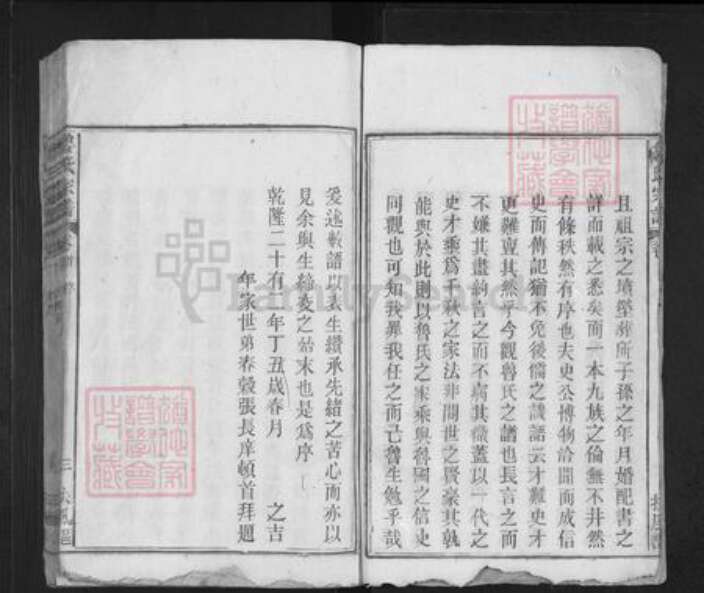 且祖宗之墳塋葬所子孫之年月婚配書之
詳而載之悉矣而一本九族之倫無不井然
有條秩然有序也夫史公博物洽聞而成信
史而傳記猶不免後儒之譏語云才難史才
更難豈其然乎今觀魯氏之譜也長言之而
不嫌其盡約言之而不病其微蓋以一代之
史才乘爲千秋之家法非間世之賢豪其孰
能與於此則以魯氏之家乘與魯國之信史
同觀也可知我罪我任之而已魯生勉乎哉
爰述數語以表生纘承先緒之苦心而亦以
見余與生締交之始末也是爲序
乾隆二十有 年丁丑歲春月 之吉
年家世弟春穀張長庠頓首拜題
魯氏宗譜
三
扶風
FamilySearch